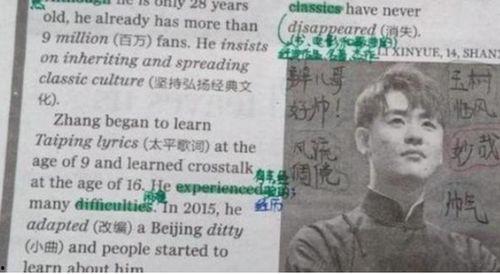 Although he is only 28 years
old, he already has more than
9 million (百万) fans. He insists
on inheriting and spreading
classic culture (坚持弘扬经典文
化).
Zhang began to learn
Taiping lyrics (太平歌词) at the
age of 9 and learned crosstalk
at the age of 16. He experienced
经历
困难
many difficulties. In 2015, he
adapted (改编) a Beijing ditty
(小曲) and people started to
learn about him
classics have never
disappeared (消失).
名著 杰作
LI XINYUE, 14,
辫儿哥
好帅!
风流
倜傥
玉树
临风
妙哉
帅气